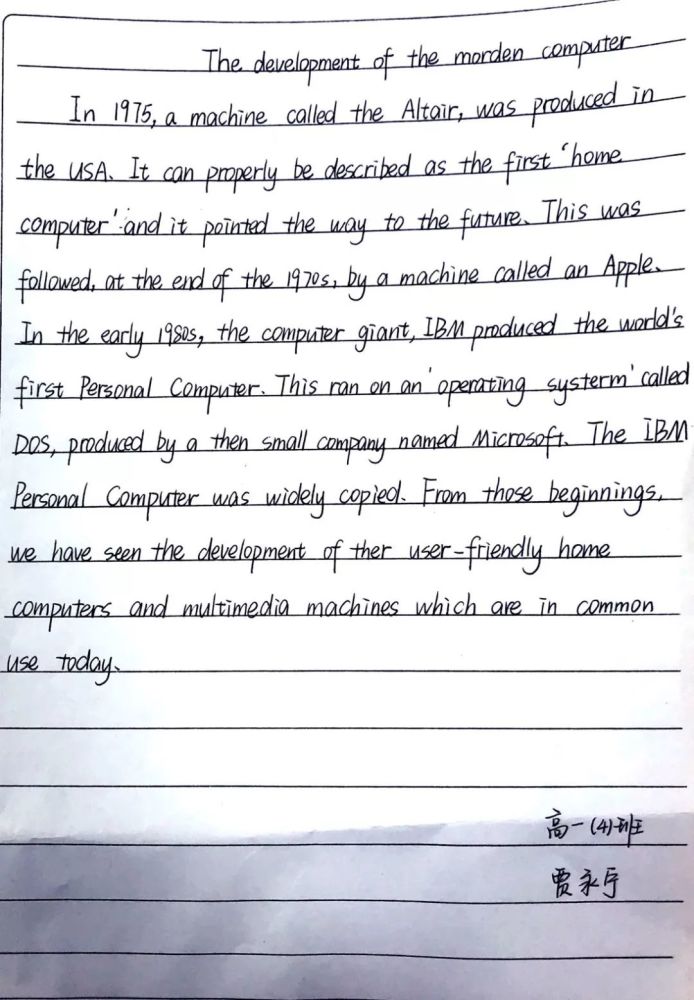 The development of the morden computer
In 1975, a machine called the Altair, was produced in
the USA. It can properly be described as the first 'home
computer' and it pointed the way to the future. This was
followed, at the end of the 1970s, by a machine called an Apple.
In the early 1980s, the computer giant, IBM produced the world's
first Personal Computer. This ran on an 'operating systerm' called
DOS, produced by a then small company named Microsoft. The IBM
Personal Computer was widely copied. From those beginnings,
we have seen the development of ther user-friendly home
computers and multimedia machines which are in common
use today.
高一(4)班
贾永